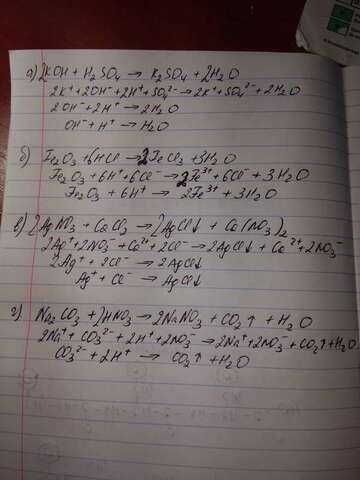 а) 2KOH + H₂SO₄ → K₂SO₄ + 2H₂O
2K⁺ + 2OH⁻ + 2H⁺ + SO₄²⁻ → 2K⁺ + SO₄²⁻ + 2H₂O
2OH⁻ + 2H⁺ → 2H₂O
OH⁻ + H⁺ → H₂O
б) Fe₂O₃ + 6HCl → 2FeCl₃ + 3H₂O
Fe₂O₃ + 6H⁺ + 6Cl⁻ → 2Fe³⁺ + 6Cl⁻ + 3H₂O
Fe₂O₃ + 6H⁺ → 2Fe³⁺ + 3H₂O
в) 2AgNO₃ + CaCl₂ → 2AgCl↓ + Ca(NO₃)₂
2Ag⁺ + 2NO₃⁻ + Ca²⁺ + 2Cl⁻ → 2AgCl↓ + Ca²⁺ + 2NO₃⁻
2Ag⁺ + 2Cl⁻ → 2AgCl↓
Ag⁺ + Cl⁻ → AgCl↓
г) Na₂CO₃ + 2HNO₃ → 2NaNO₃ + CO₂↑ + H₂O
2Na⁺ + CO₃²⁻ + 2H⁺ + 2NO₃⁻ → 2Na⁺ + 2NO₃⁻ + CO₂↑ + H₂O
CO₃²⁻ + 2H⁺ → CO₂↑ + H₂O